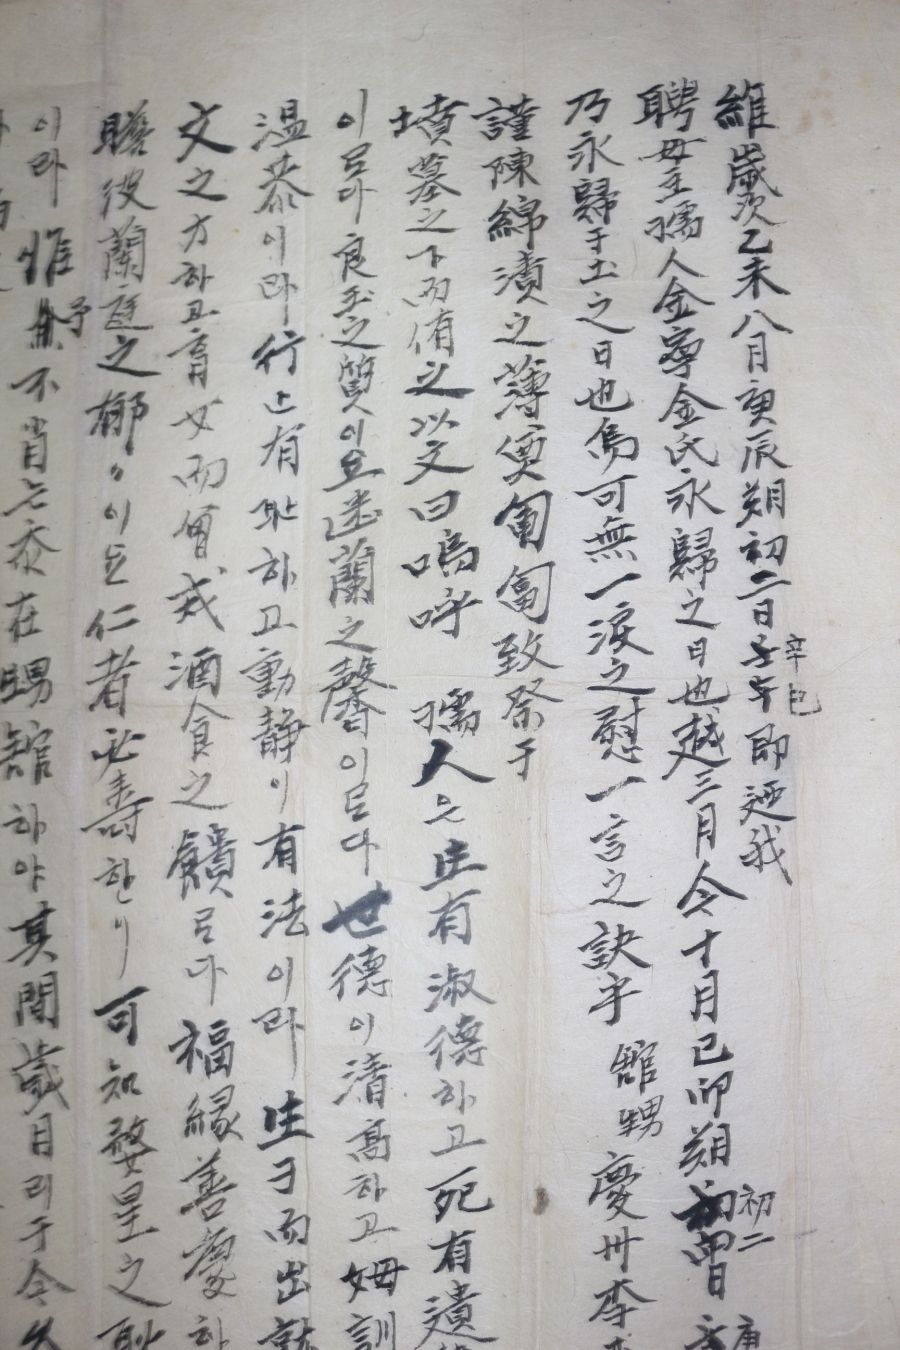 維歲次乙未八月庚辰朔初二日辛巳即廼我
聘母主孺人金寧金氏永歸之日也越三月今十月己卯朔初二日庚
乃永歸于土之日也焉可無一淚之慰一言之訣乎 舘甥慶州李
謹陳綿漬之薄奠匍匐致祭于
墳墓之下而侑之以文曰嗚呼 孺人은生有淑德하고死有遺
이로다良玉之質이요幽蘭之馨이로다世德이清高하고姆訓
溫恭이라行止有 하고動靜이有法이라生子而出就
文之方하고育女而 戒酒食之饋로다福緣善慶하
瞻彼蘭庭之郁々이요仁者必壽한이可知婺星之耿
이라惟予不肖는忝在甥舘하야其間歲月리于今久